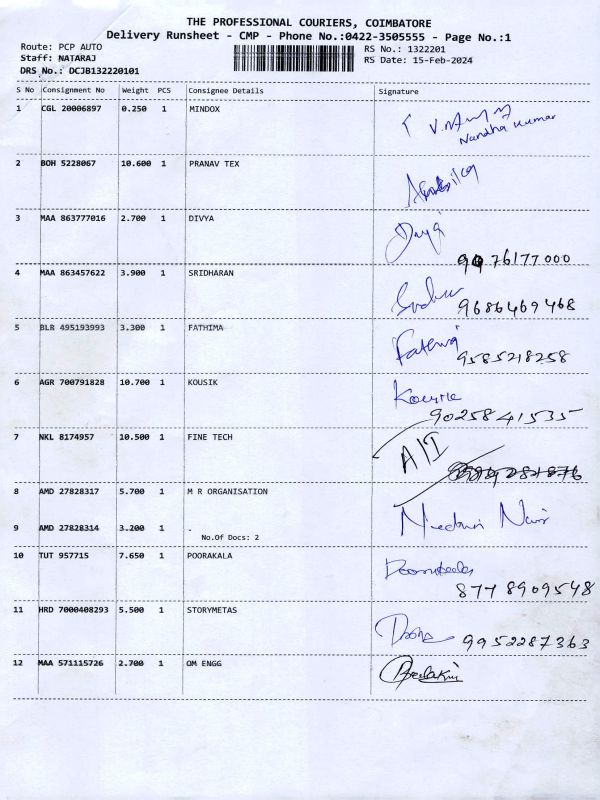 THE PROFESSIONAL COURIERS, COIMBATORE
Delivery Runsheet - CMP - Phone No.:0422-3505555 - Page No.:1
Route: PCP AUTO RS No.: 1322201
Staff: NATARAJ RS Date: 15-Feb-2024
DRS No.: DCJB132220101
S No Consignment No Weight PCS Consignee Details Signature
1 CGL 20006897 0.250 1 MINDOX
Nandha Kumar
2 BOH 5228067 10.600 1 PRANAV TEX
3 MAA 863777016 2.700 1 DIVYA Divya
76177000
4 MAA 863457622 3.900 1 SRIDHARAN
9686469468
5 BLR 495193993 3.300 1 FATHIMA Fathima
9585218258
6 AGR 700791828 10.700 1 KOUSIK
9025841535
7 NKL 8174957 10.500 1 FINE TECH A/I
8 AMD 27828317 5.700 1 M R ORGANISATION
9 AMD 27828314 3.200 1 .
No.Of Docs: 2
10 TUT 957715 7.650 1 POORAKALA
8778909548
11 HRD 7000408293 5.500 1 STORYMETAS
9952287363
12 MAA 571115726 2.700 1 OM ENGG